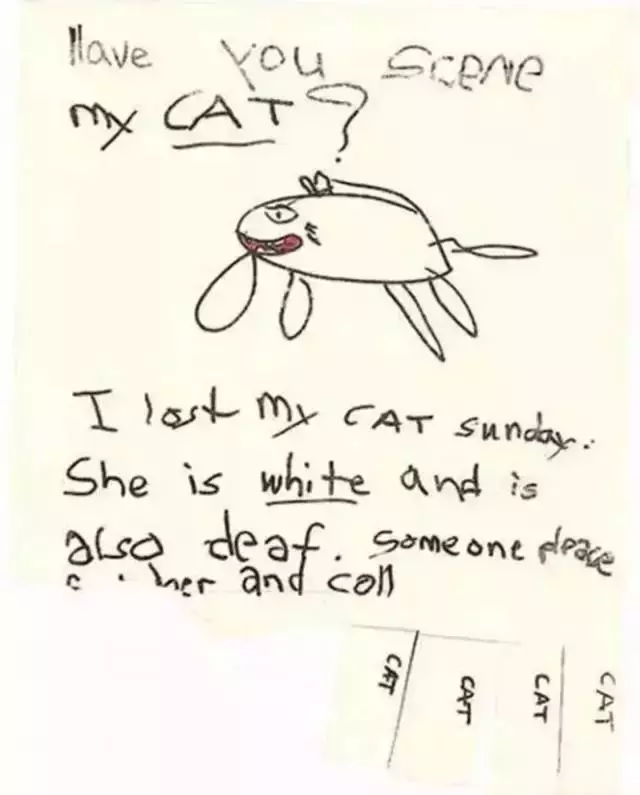 Have you scene
my CAT?
I lost my CAT sunday.
She is white and is
also deaf. Someone please
her and call
CAT
CAT
CAT
CAT